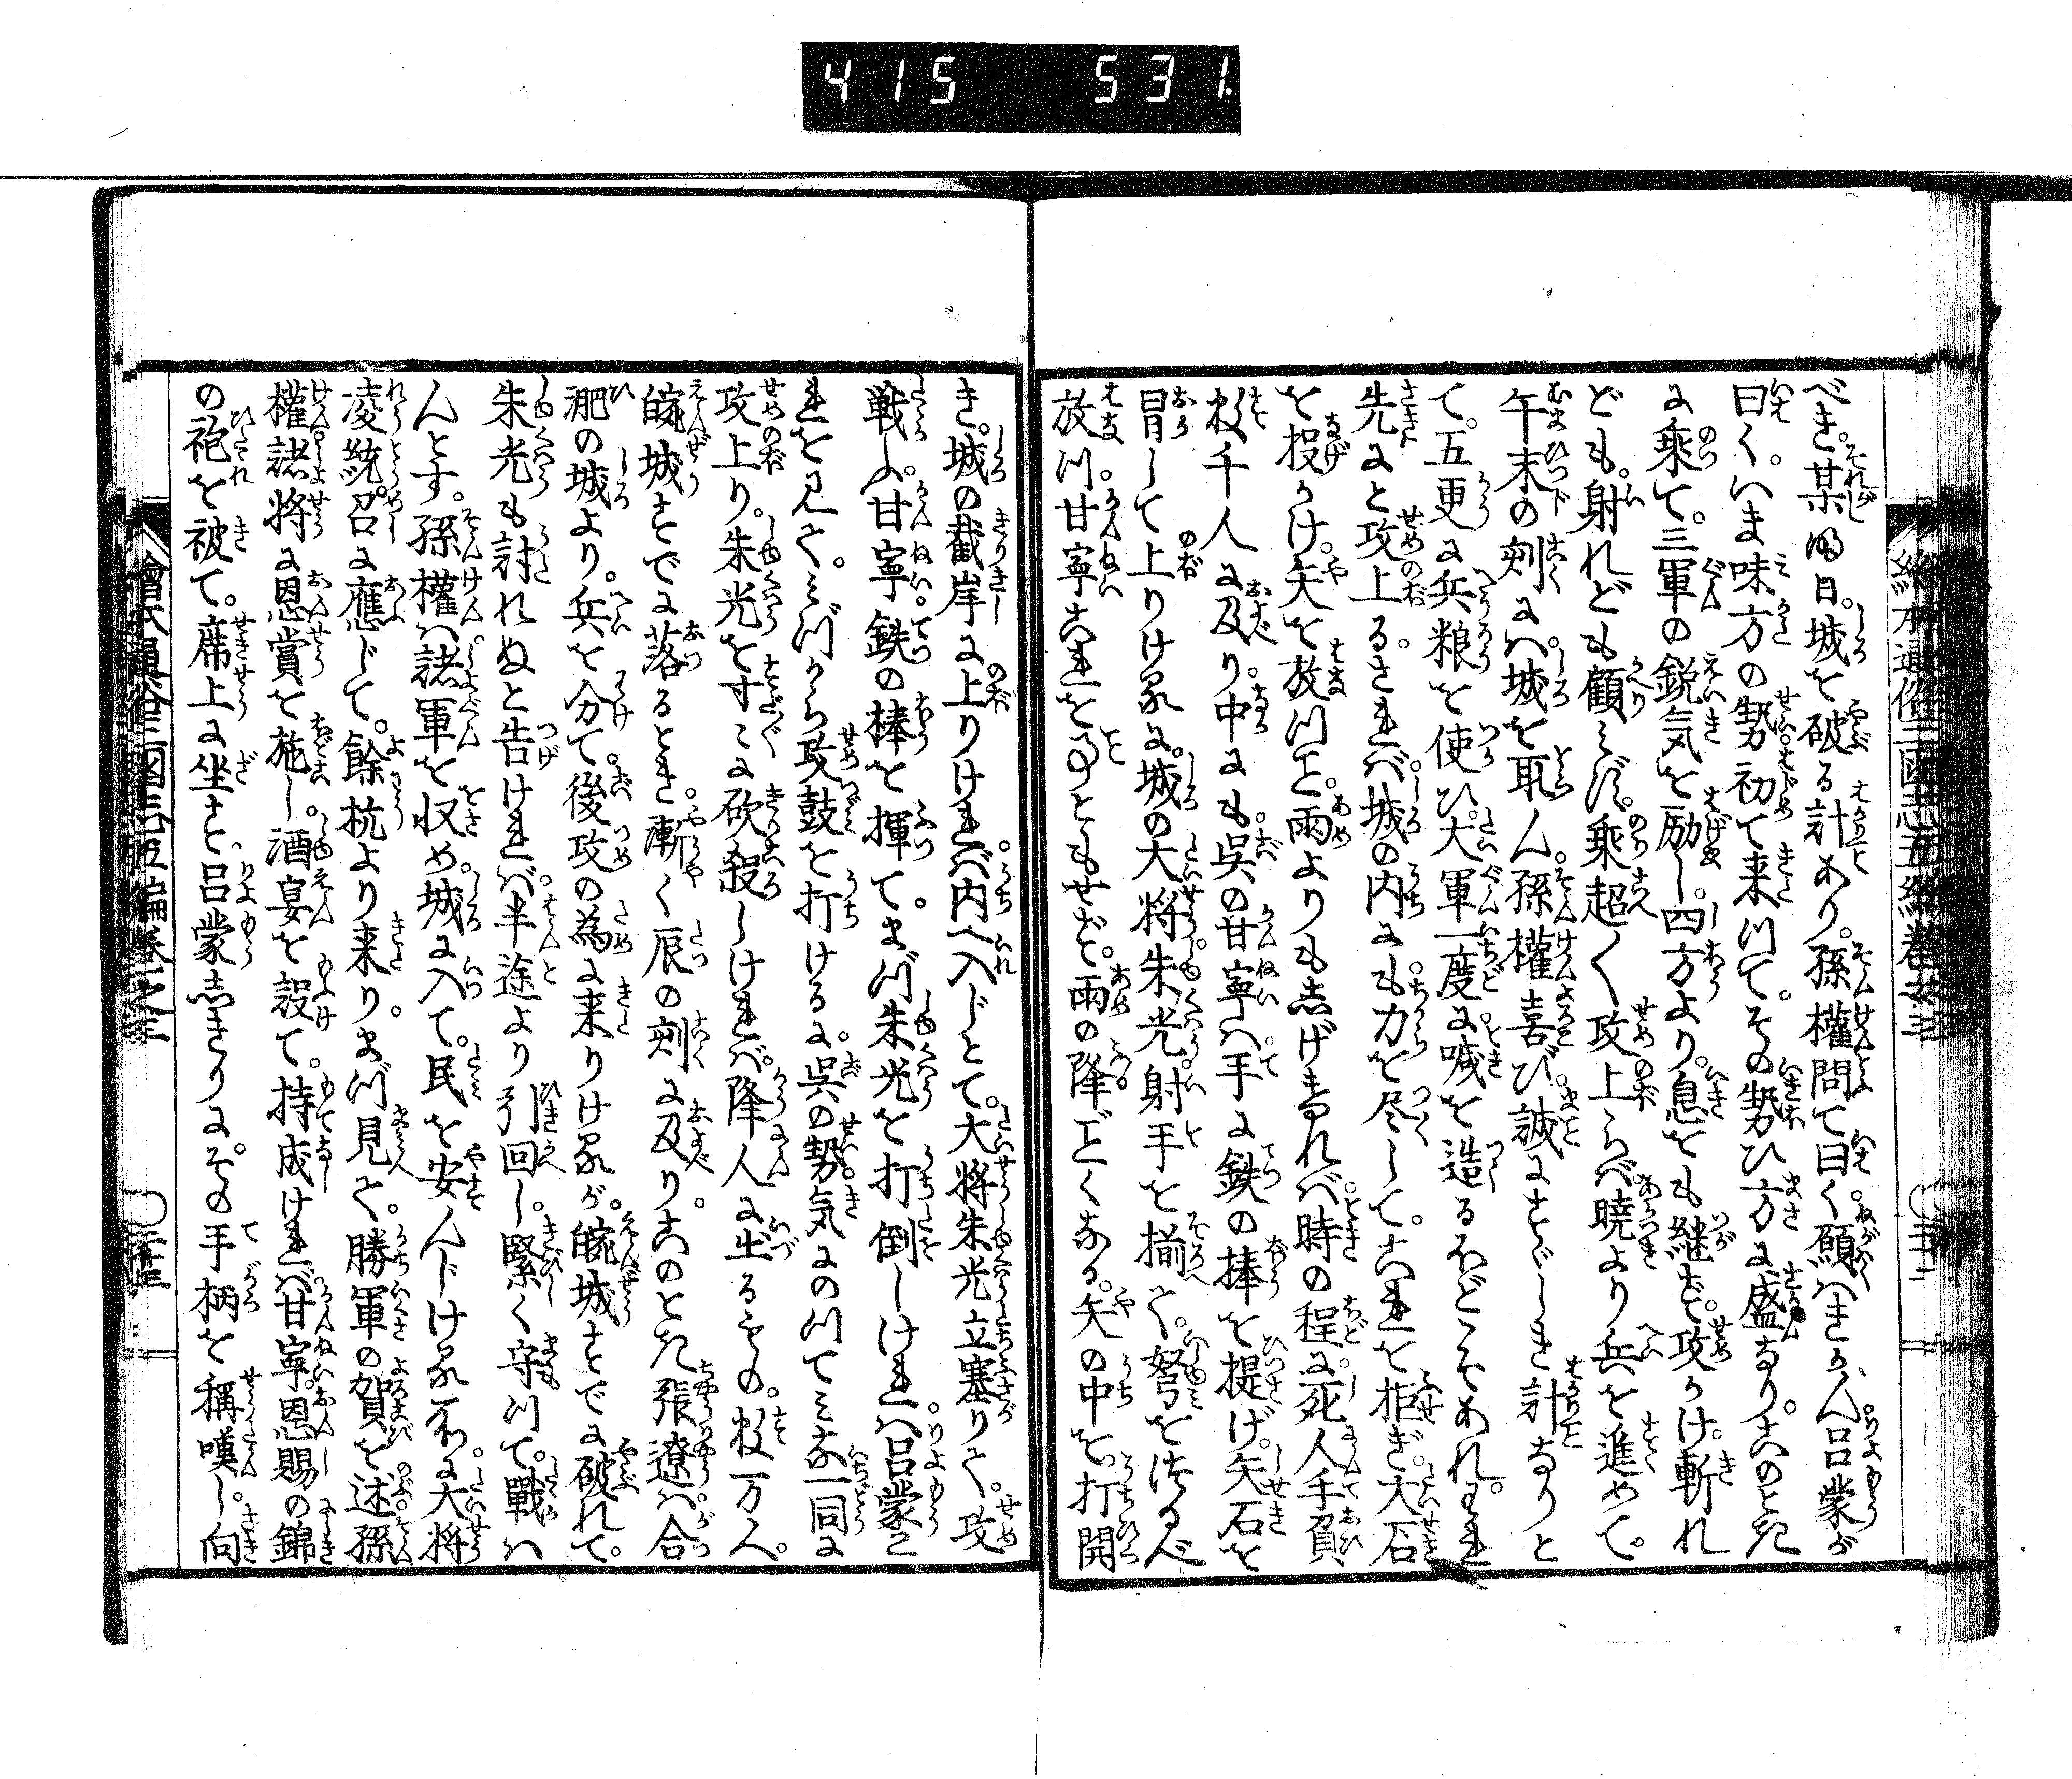 415 531.
べき。某明日。城を破る計あり。孫權問て曰く。願くハきかん。呂蒙が
曰く。いま味方の勢。初て来つて。その勢ひ方に盛なり。このとき
に乗て。三軍の鋭気を励し。四方より。息をも継ず。攻かけ。斬れ
ども。射れども顧ミず。乗超〱攻上らバ。暁より兵を進めて。
午未の刻にハ。城を取ん。孫權喜び。誠にすゞしき計なりと
て。五更に兵粮を使ひ。大軍一度に喊を造るほどこそあれ。われ
先にと攻上る。されバ。城の内にも。力を尽して。これを拒ぎ。大石
を投かけ。矢を放つこと。雨よりもしげけれバ。時の程に。死人手負
数千人に及り。中にも。呉の甘寧ハ。手に鉄の棒を提げ。矢石を
冒して上りけるに。城の大将朱光。射手を揃て。弩をつるべ
放つ。甘寧これを事ともせず。雨の降ごとくなる。矢の中を。打開
き。城の截岸に上りけれバ。内へ入じとて。大将朱光立塞りて。攻
戦ふ。甘寧。鉄の棒を揮て。まづ朱光を打倒しけれハ。呂蒙こ
れを見て。ミづから攻鼓を打けるに。呉の勢。気にのつてミな一同に
攻上り。朱光を寸〻に砍殺しけれバ。降人に出るもの。数万人。
皖城すでに落るとき。漸く辰の刻に及り。このとき張遼ハ。合
淝の城より。兵を分て。後攻の為に来りけるが。皖城すでに破れて。
朱光も討れぬと告けれバ。半途より引回し。緊く守つて。戰ハ
んとす。孫權ハ。諸軍を収め。城に入て。民を安んじける所に。大将
凌統。召に應じて。餘杭より来り。まづ見て。勝軍の賀を述。孫
權諸将に恩賞を施し。酒宴を設て。持成けれバ。甘寧。恩賜の錦
の袍を被て。席上に坐す。呂蒙しきりに。その手柄を稱嘆し。向